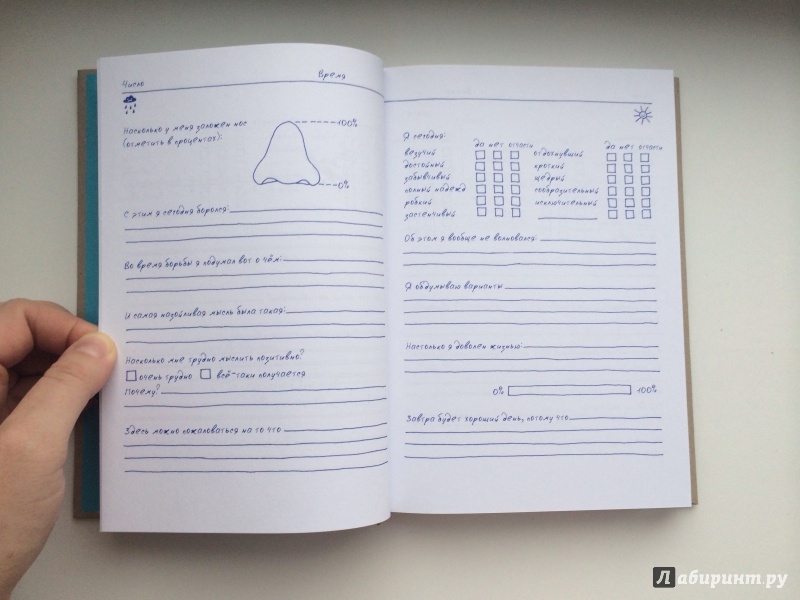 Число Время
Насколько у меня заложен нос
(отметить в процентах):
100%
0%
С этим я сегодня боролся:
Во время борьбы я подумал вот о чём:
И самая назойливая мысль была такая:
Насколько мне трудно мыслить позитивно?
очень трудно всё-таки получается
Почему?
Здесь можно пожаловаться на то что
Я сегодня:
да нет отчасти да нет отчасти
везучий отдохнувший
достойный кроткий
забывчивый щедрый
полный надежд сообразительный
робкий исключительный
застенчивый
Об этом я вообще не волновался:
Я обдумываю варианты
Настолько я доволен жизнью:
0% 100%
Завтра будет хороший день, потому что
Лабиринт.ру